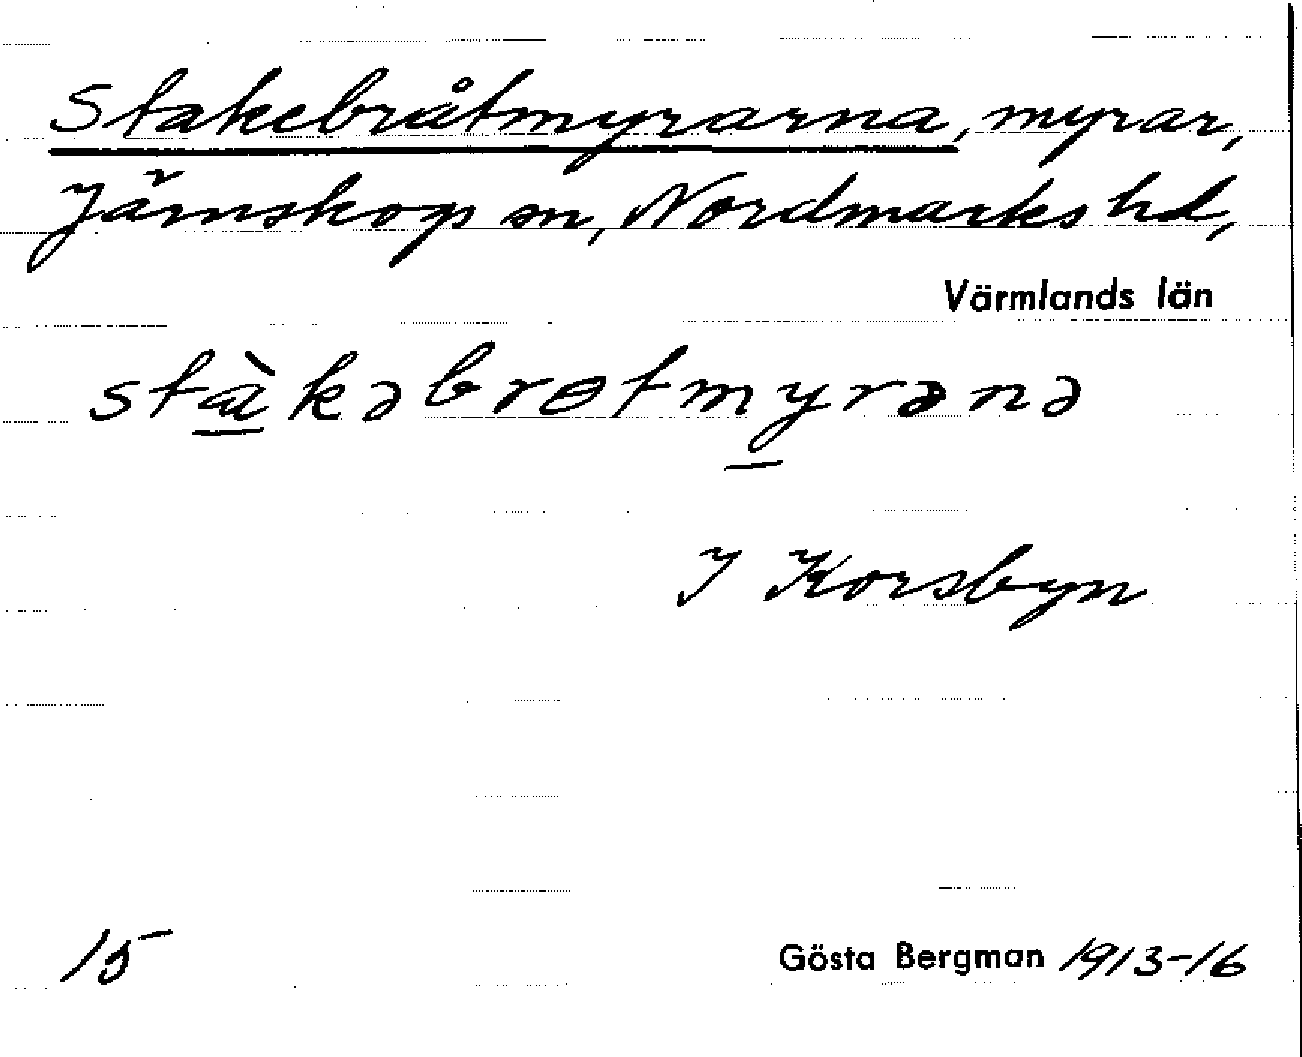 Stakebråtmyrarna, myrar,
Järnskogs sn, Nordmarks hd,
Värmlands län
stàkəbrɵtmyrənə
I Korsbyn
15
Gösta Bergman 1913-16